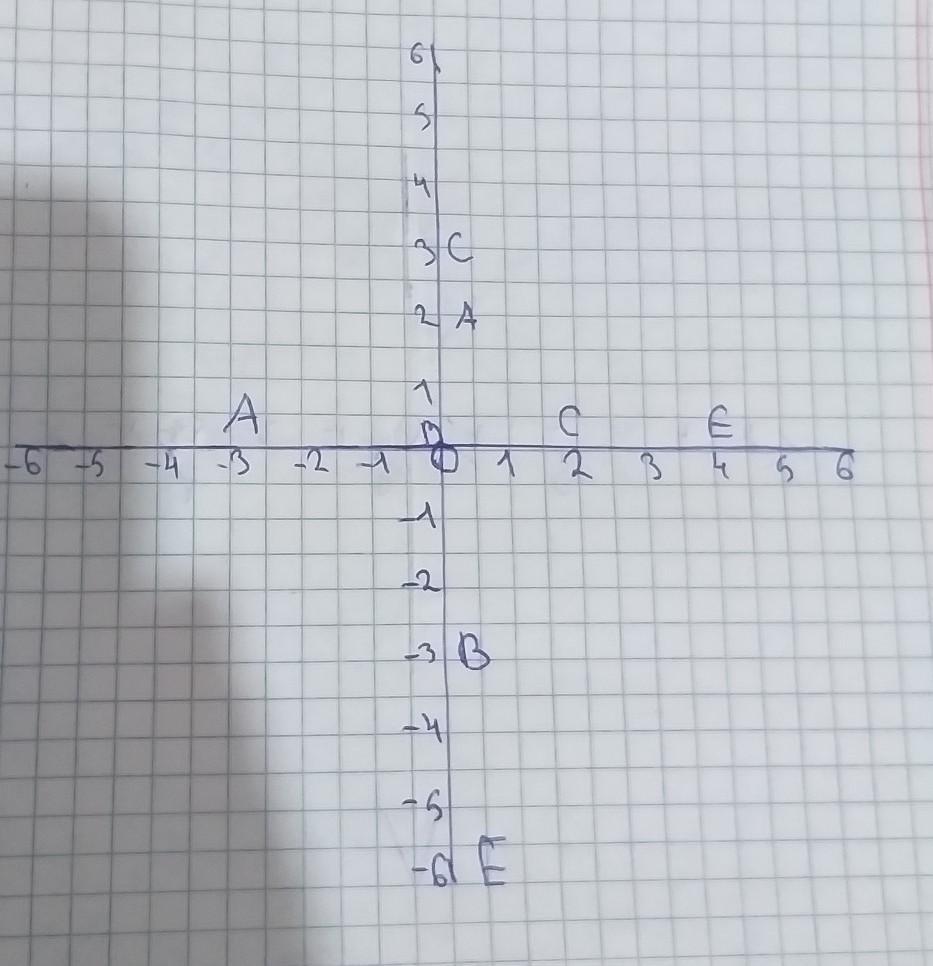 6
5
4
3 C
2 A
1
A C E
-6 -5 -4 -3 -2 -1 0 1 2 3 4 5 6
-1
-2
-3 B
-4
-5
-6 E